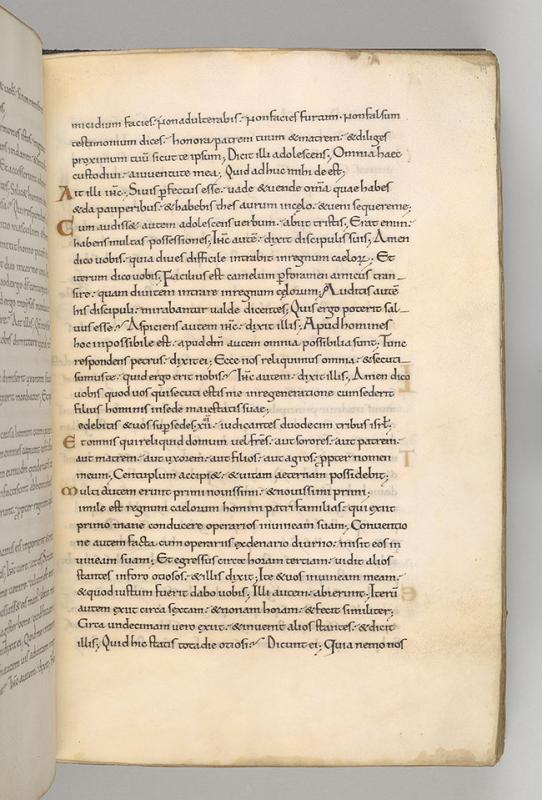 micidium facies; Non adulterabis; Non facies furtum; Non falsum
testimonium dices; honora patrem tuum & matrem; & diliges
proximum tuū sicut te ipsum; Dicit illi adolescens; Omnia haec
custodiui a iuuentute mea; Quid adhuc mihi deest;
Ait illi ihc; Si uis pfectus esse; uade & uende omīa quae habes
& da pauperibus; & habebis thesaurum in celo; & ueni sequere me;
Cum audiss& autem adolescens uerbum; abiit tristis; Erat enim
habens multas possessiones; Ihc autē dixit discipulis suis; Amen
dico uobis; quia diues difficile intrabit in regnum caelorū; Et
iterum dico uobis; Facilius est camelum p foramen acus tran
sire; quam diuitem intrare in regnum celorum; Auditis autē
his discipuli mirabantur ualde dicentes; Quis ergo poterit sal
uus esse; Aspiciens autem ihc dixit illis; Apud homines
hoc impossibile est; apud dm̄ autem omnia possibilia sunt; Tunc
respondens petrus dixit ei; Ecce nos reliquimus omnia & secuti
sumus te; quid ergo erit nobis; Ihc autem dixit illis; Amen dico
uobis quod uos qui secuti estis me in regeneratione cum sederit
filius hominis in sede maiestatis suae;
edebitis & uos sup sedes xii; iudicantes duodecim tribus isrł;
Et omnis qui reliquid domum uel frēs; aut sorores; aut patrem
aut matrem; aut uxorem; aut filios; aut agros; ppter nomen
meum; Centuplum accipi&; & uitam aeternam possidebit;
Multi autem erunt primi nouissimi; & nouissimi primi;
imile est regnum caelorum homini patri familias; qui exiit
primo mane conducere operarios in uineam suam; Conuentio
ne autem facta cum operariis ex denario diurno; misit eos in
uineam suam; Et egressus circa horam tertiam; uidit alios
stantes in foro otiosos; & illis dixit; Ite & uos in uineam meam
& quod iustum fuerit dabo uobis; Illi autem abierunt; Iterū
autem exiit circa sextam & nonam horam; & fecit similiter;
Circa undecimam uero exiit; & inuenit alios stantes; & dicit
illis; Quid hic statis tota die otiosi; Dicunt ei; Quia nemo nos